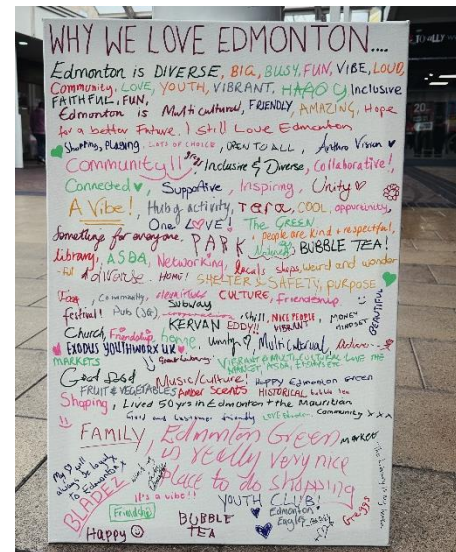 WHY WE LOVE EDMONTON....
Edmonton is DIVERSE, BIG, BUSY, FUN, VIBE, LOUD,
Community, LOVE, YOUTH, VIBRANT. Inclusive
FAITHFUL, FUN,
Edmonton is Multicultural, FRIENDLY, AMAZING, Hope
for a better Future. I still Love Edmonton
Shopping, PLAYING, LOTS OF CHOICE, OPEN TO ALL, Anthro Vision
Community!! Inclusive & Diverse, Collaborative!
Connected, Supportive, Inspiring, Unity
A Vibe!, Hub of activity, COOL, opportunity,
One LOVE! The GREEN
Something for everyone. PARK, people are kind + respectful,
BUBBLE TEA!
library, ASDA, Networking, locals shops, weird and wonder
-ful diverse. HOME! SHELTER & SAFETY, PURPOSE
Community, CULTURE, Friendship
festival! Pub Subway
Chill, NICE PEOPLE, MONEY MINDSET
BEAUTIFUL
KERVAN EDDY!! VIBRANT
Church, Friendship, home, Unity, Multi Cultural,
EXODUS YOUTHWORX UK
MARKETS VIBRANT & MULTICULTURAL LOVE THE
MARKET, ASDA,
Good food Music/Culture! Happy Edmonton Green
FRUIT & VEGETABLES Amber Scents HISTORICAL
Shopping, Lived 50 yrs in Edmonton + the Mauritian
Community xxx
FAMILY, Edmonton Green market
is really very nice
place to do shopping
My will always be loyal to Edmonton
BLADEZ
it's a vibe!! YOUTH CLUB!
Friendship
Edmonton Eagles
Greggs
Happy BUBBLE TEA